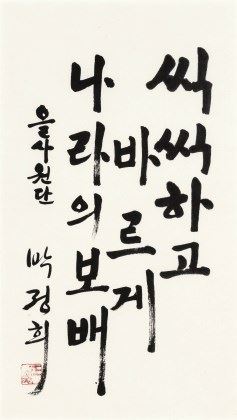 씩씩하고
바르게
나라의보배
을사원단
박정희